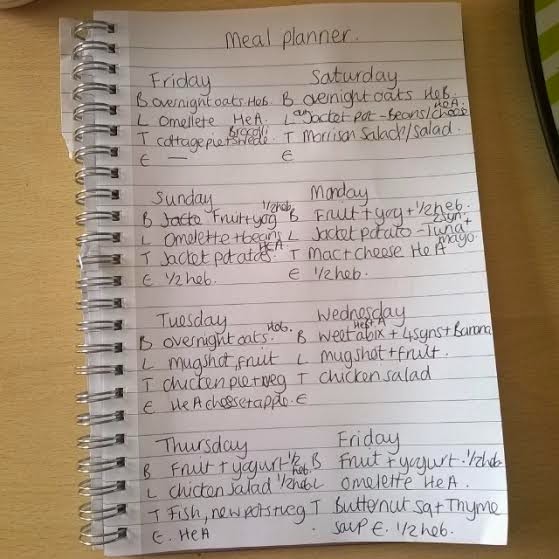 Meal planner.
Friday Saturday
B overnight oats HeB. B overnight oats HeB.
L Omellete HeA L Jacket pot - Beans/cheese HeA
T cottage pie + swede Brocolli T Morrison /salad.
E — E
Sunday Monday
B Fruit + yog 1/2 heb B Fruit + yog + 1/2 heb.
L Omelette + beans L Jacket potato - Tuna + mayo. 2syn
T Jacket potatoe HEA T Mac + cheese HeA
E 1/2 heb. E 1/2 heb.
Tuesday Wednesday
B overnight oats. Heb. B weetabix + 4syns + Banana
L mugshot, fruit L mugshot + fruit.
T chicken pie + veg T chicken salad
E HeA cheese + apple. E
Thursday Friday
B Fruit + yogurt 1/2 heb B Fruit + yogurt. 1/2 heb
L chicken salad 1/2 heb L omelette HeA.
T Fish, new pots + veg T Butternut sq + Thyme
E. HeA soup E. 1/2 heb.